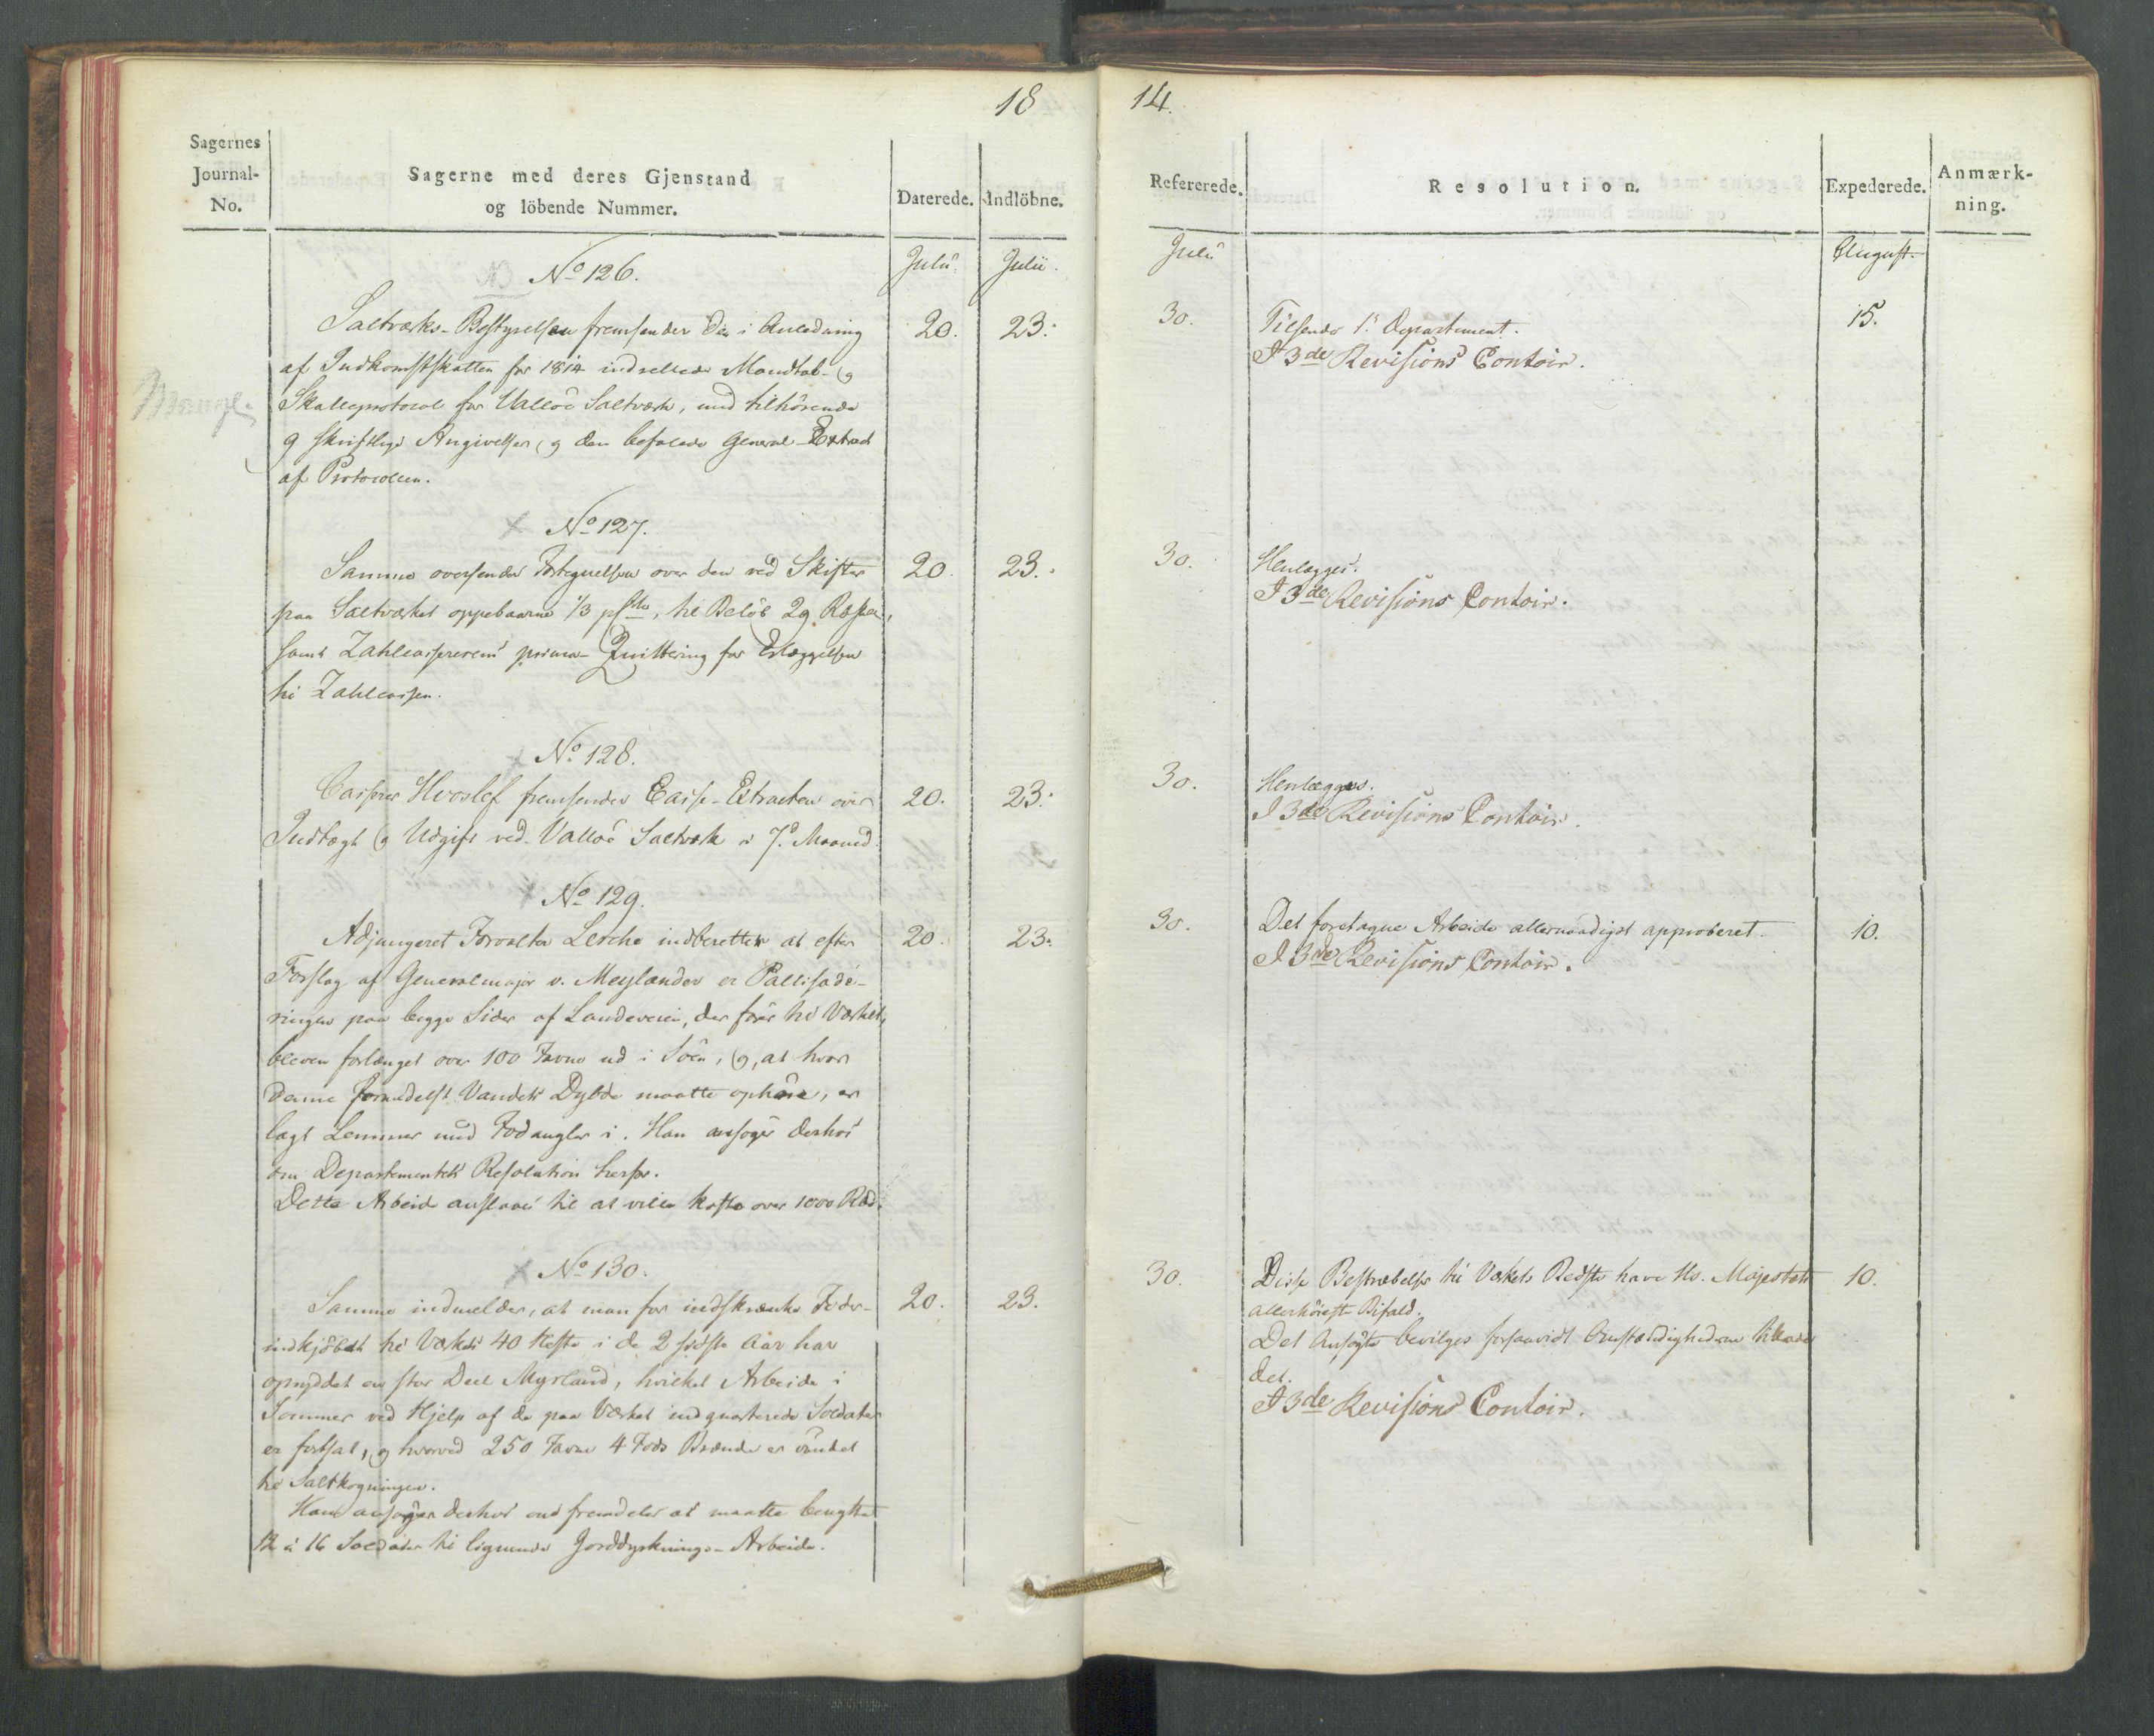 18
14.
Sagernes
Journal-
No.
Sagerne med deres Gjenstand
og löbende Nummer.
Daterede.
Indlöbne.
Refererede.
Resolution.
Expederede.
Anmærk-
ning.
Julii.
Julii.
Julii
August.
NB No 126.
Saltværks-Bestyrelsen fremsender de i Anledning
af Indkomstskatten for 1814 indrettede Mandtal- og
Skatteprotocol for Valloë Saltværk, med tilhörende
9 skriftlige Angivelser og den befalede General-Extract
af Protocollen.
Mangl.
20.
23.
30.
Tilsendes 1ste Departement.
I 3de Revisions Contoir.
15.
No 127.
Samme oversender Fortegnelsen over den ved Skifter
paa Saltværket oppebaarne 1/3 pCto, til Beløb 29 Rbs
samt Zahlcassererens prima- Qvittering for Erlæggelsen
til Zahlcassen.
20.
23.
30.
Henlægges.
I 3de Revisions Contoir.
No 128.
Casserer Hvoslef fremsender Casse-Extracten over
Indtægt og Udgift ved Valloë Saltværk i 7de Maaned.
20.
23.
30.
Henlægges.
I 3de Revisions Contoir.
No 129.
Adjungeret Forvalter Lerche indberetter at efter
Forslag af Generalmajor v. Meylænder er Pallisade-
ringen paa begge Sider af Landeveien, der förer til Værket,
bleven forlænget over 100 Favne ud i Söen, og, at hvor
denne formedelst Vandets Dybde maatte ophöre, er
lagt Lemmer med Fodangler i. Han ansöger derhos
om Departementets Resolution herfor.
Dette Arbeide anslaaes til at ville koste over 1000 Rbd.
20.
23.
30.
Det foretagne Arbeide allernaadigst approberet.
I 3de Revisions Contoir.
10.
No 130.
Samme indmelder, at man for indskrænke Foder-
indkjöbet til Værkets 40 Heste i de 2 sidste Aar har
opryddet en stor Deel Myrland, hvilket Arbeide i
Sommer ved Hjelp af de paa Værket indqvarterede Soldater
er fortsat, og hvorved 250 Favne 4 Fods Brænde er vundet
til Saltkogningen.
Han ansöger derhos om fremdeles at maatte benytte
12 à 16 Soldater til lignende Jorddyrknings-Arbeide.
20.
23.
30.
Disse Bestræbelser til Værkets Bedste have Hs. Majestæts
allerhöieste Bifald.
Det Ansögte bevilges forsaavidt Omstændighederne tillade
det.
I 3de Revisions Contoir.
10.